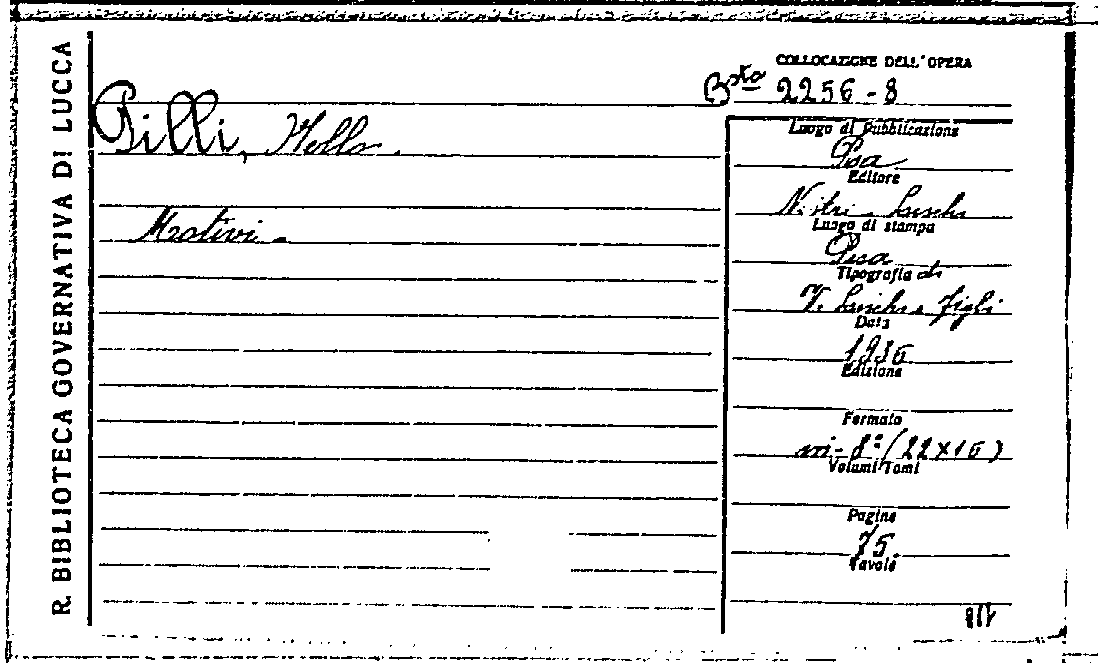 R. BIBLIOTECA GOVERNATIVA DI LUCCA
COLLOCAZIONE DELL'OPERA
Bsta 2256-8
Billi,
Motivi.
Luogo di Pubblicazione
Pisa
Editore
Nistri - Lischi
Luogo di stampa
Pisa
Tipografia di
V. Lischi e Figli
Data
1936
Edizione
Formato
in-8° (22x16)
Volumi/Tomi
Pagine
75.
Tavole